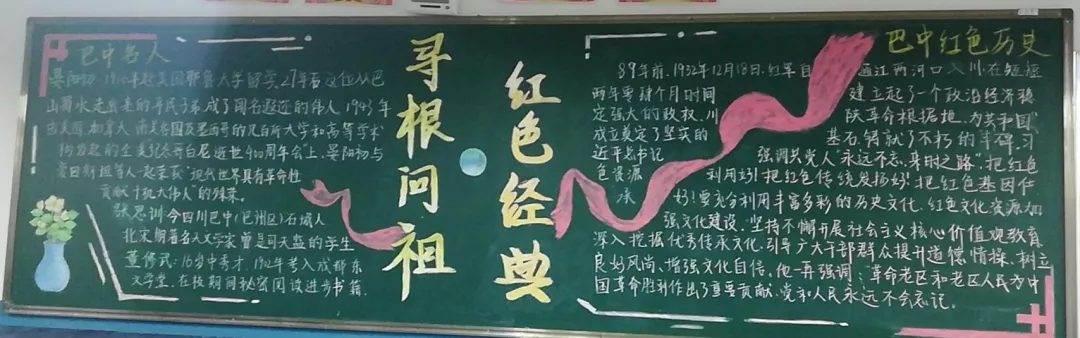 巴中名人
晏阳初，1916年赴美国耶鲁大学留学，27年后这位从巴
山蜀水走出来的平民子弟成了闻名遐迩的伟人，1943年
由美国、加拿大、南美各国及墨西哥的几百所大学和高等学术
构发起的全美纪念哥白尼逝世400周年会上，晏阳初与
爱因斯坦等人一起荣获"现代世界具有革命性
贡献十大伟人"的殊荣。
张思训今四川巴中(巴州区)石城人
北宋朝著名天文学家曾是司天监的学生
董修武：16岁中秀才，1902年考入成都东
文学堂，在校期间秘密阅读进步书籍.
寻根问祖
红色经典
巴中红色历史
89年前，1932年12月18日，红军自通江两河口入川，在短短
两年零肆个月时间建立起了一个政治经济稳
定强大的政权，川陕革命根据地，为共和国
成立奠定了坚实的基石，铸就了不朽的丰碑，习
近平总书记强调共党人"永远不忘，来时之路"，把红
色资源利用好！把红色传统发扬好，把红色基因传
承好！要充分利用丰富多彩的历史文化、红色文化资源加
强文化建设，坚持不懈开展社会主义核心价值观教育
深入挖掘优秀传承文化，引导广大干部群众提升道德情操、树立
良好风尚、增强文化自信，他一再强调：革命老区和老区人民为中
国革命胜利作出了重要贡献，党和人民永远不会忘记。